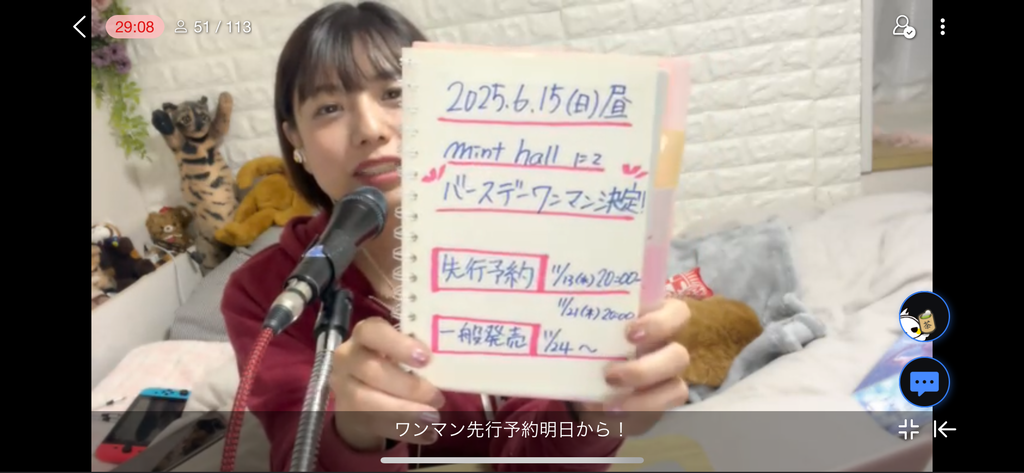 29:08
51 / 113
2025.6.15(日)昼
mint hall にて
バースデーワンマン決定!
先行予約 11/13(水)20:00~
11/21(木)20:00
一般発売 11/24~
ワンマン先行予約明日から！